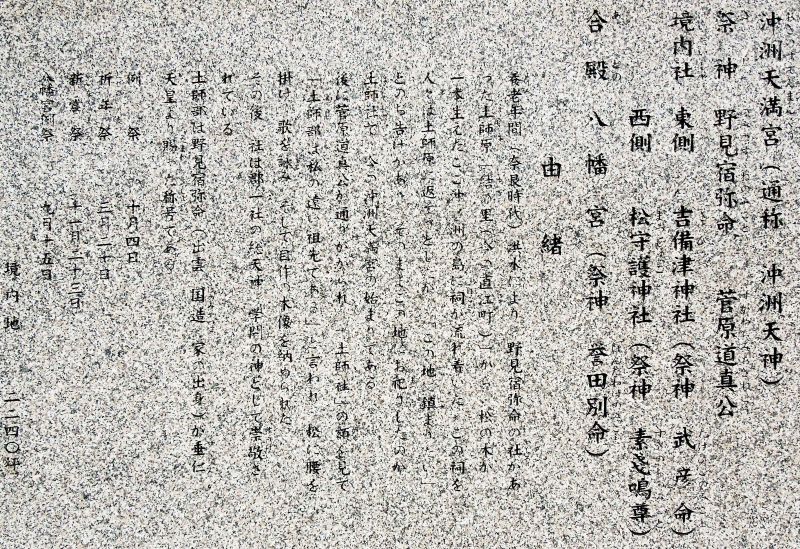 沖洲天満宮（通称 沖洲天神）
祭神 野見宿弥命 菅原道真公
境内社 東側 吉備津神社（祭神 武彦命）
西側 松守護神社（祭神 素戔嗚尊）
合殿 八幡宮（祭神 誉田別命）
由緒
養老年間（奈良時代）洪水により、野見宿弥命の社があ
った土師原 の里（ 直江町）から、松の木が
一本生えたここ沖ノ州の島に祠が流れ着いた。この祠を
人々は土師原へ返そうとしたが、「この地に鎮まりたい」
とのお告げがあり、そのままこの地にお祀りしたのが
土師社で、今の沖洲天満宮の始まりである。
後に菅原道真公が通りかかられ、土師社の額を見て
「土師部は私の遠い祖先である」と言われ、松に腰を
掛け、歌を詠み、そして自作の木像を納められた。
その後、社は郡一社の総天神、学問の神として崇敬さ
れている。
土師部は野見宿弥命（出雲国造家の出身）が垂仁
天皇より賜った称号である。
例祭 十月四日
祈年祭 三月二十日
新嘗祭 十一月二十三日
八幡宮例祭 九月十五日
境内地 一二四〇坪